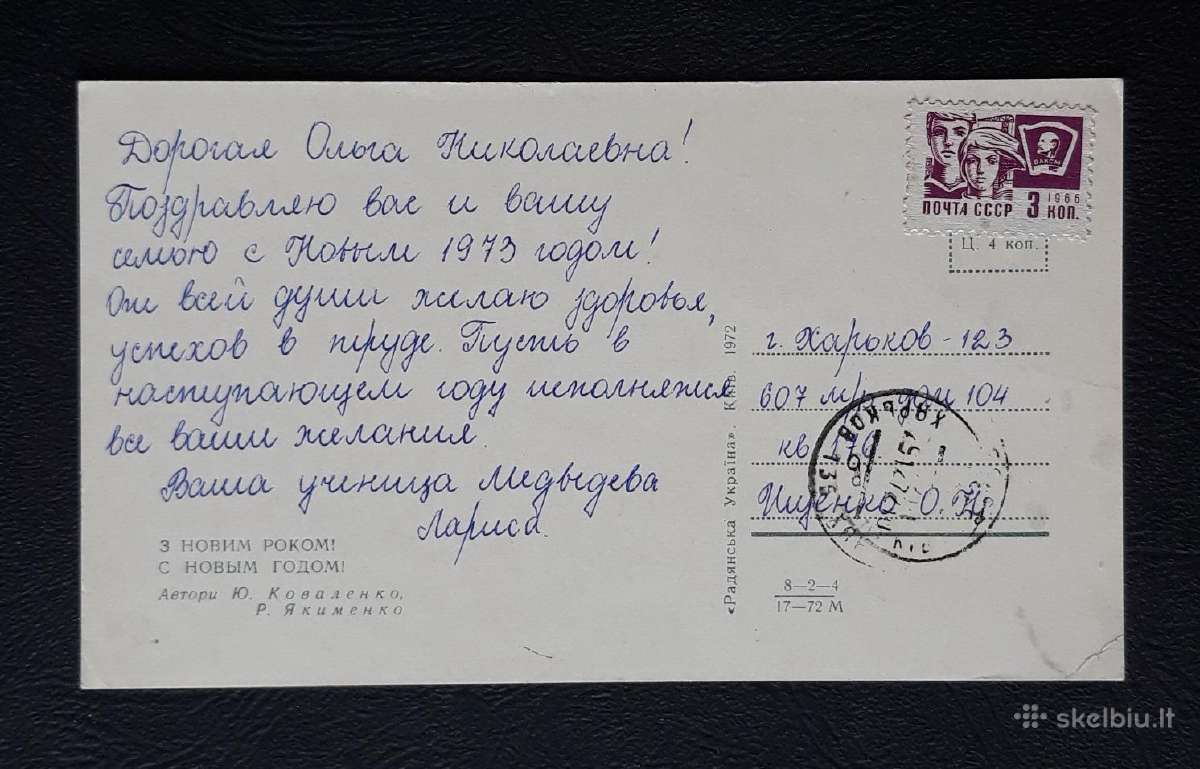 Дорогая Ольга Николаевна!
Поздравляю вас и вашу
семью с Новым 1973 годом!
От всей души желаю здоровья,
успехов в труде. Пусть в
наступающем году исполняются
все ваши желания.
Ваша ученица Медведева
Лариса.
З НОВИМ РОКОМ!
С НОВЫМ ГОДОМ!
Автори Ю. Коваленко,
Р. Якименко
«Радянська Україна». Київ. 1972
ВЛКСМ
1966
ПОЧТА СССР 3 КОП.
Ц. 4 коп.
г. Харьков - 123
607 м/р. дом 104
кв. 176
Ищенко О. Н.
ХАРЬКОВ
8—2—4
17—72 М
skelbiu.lt